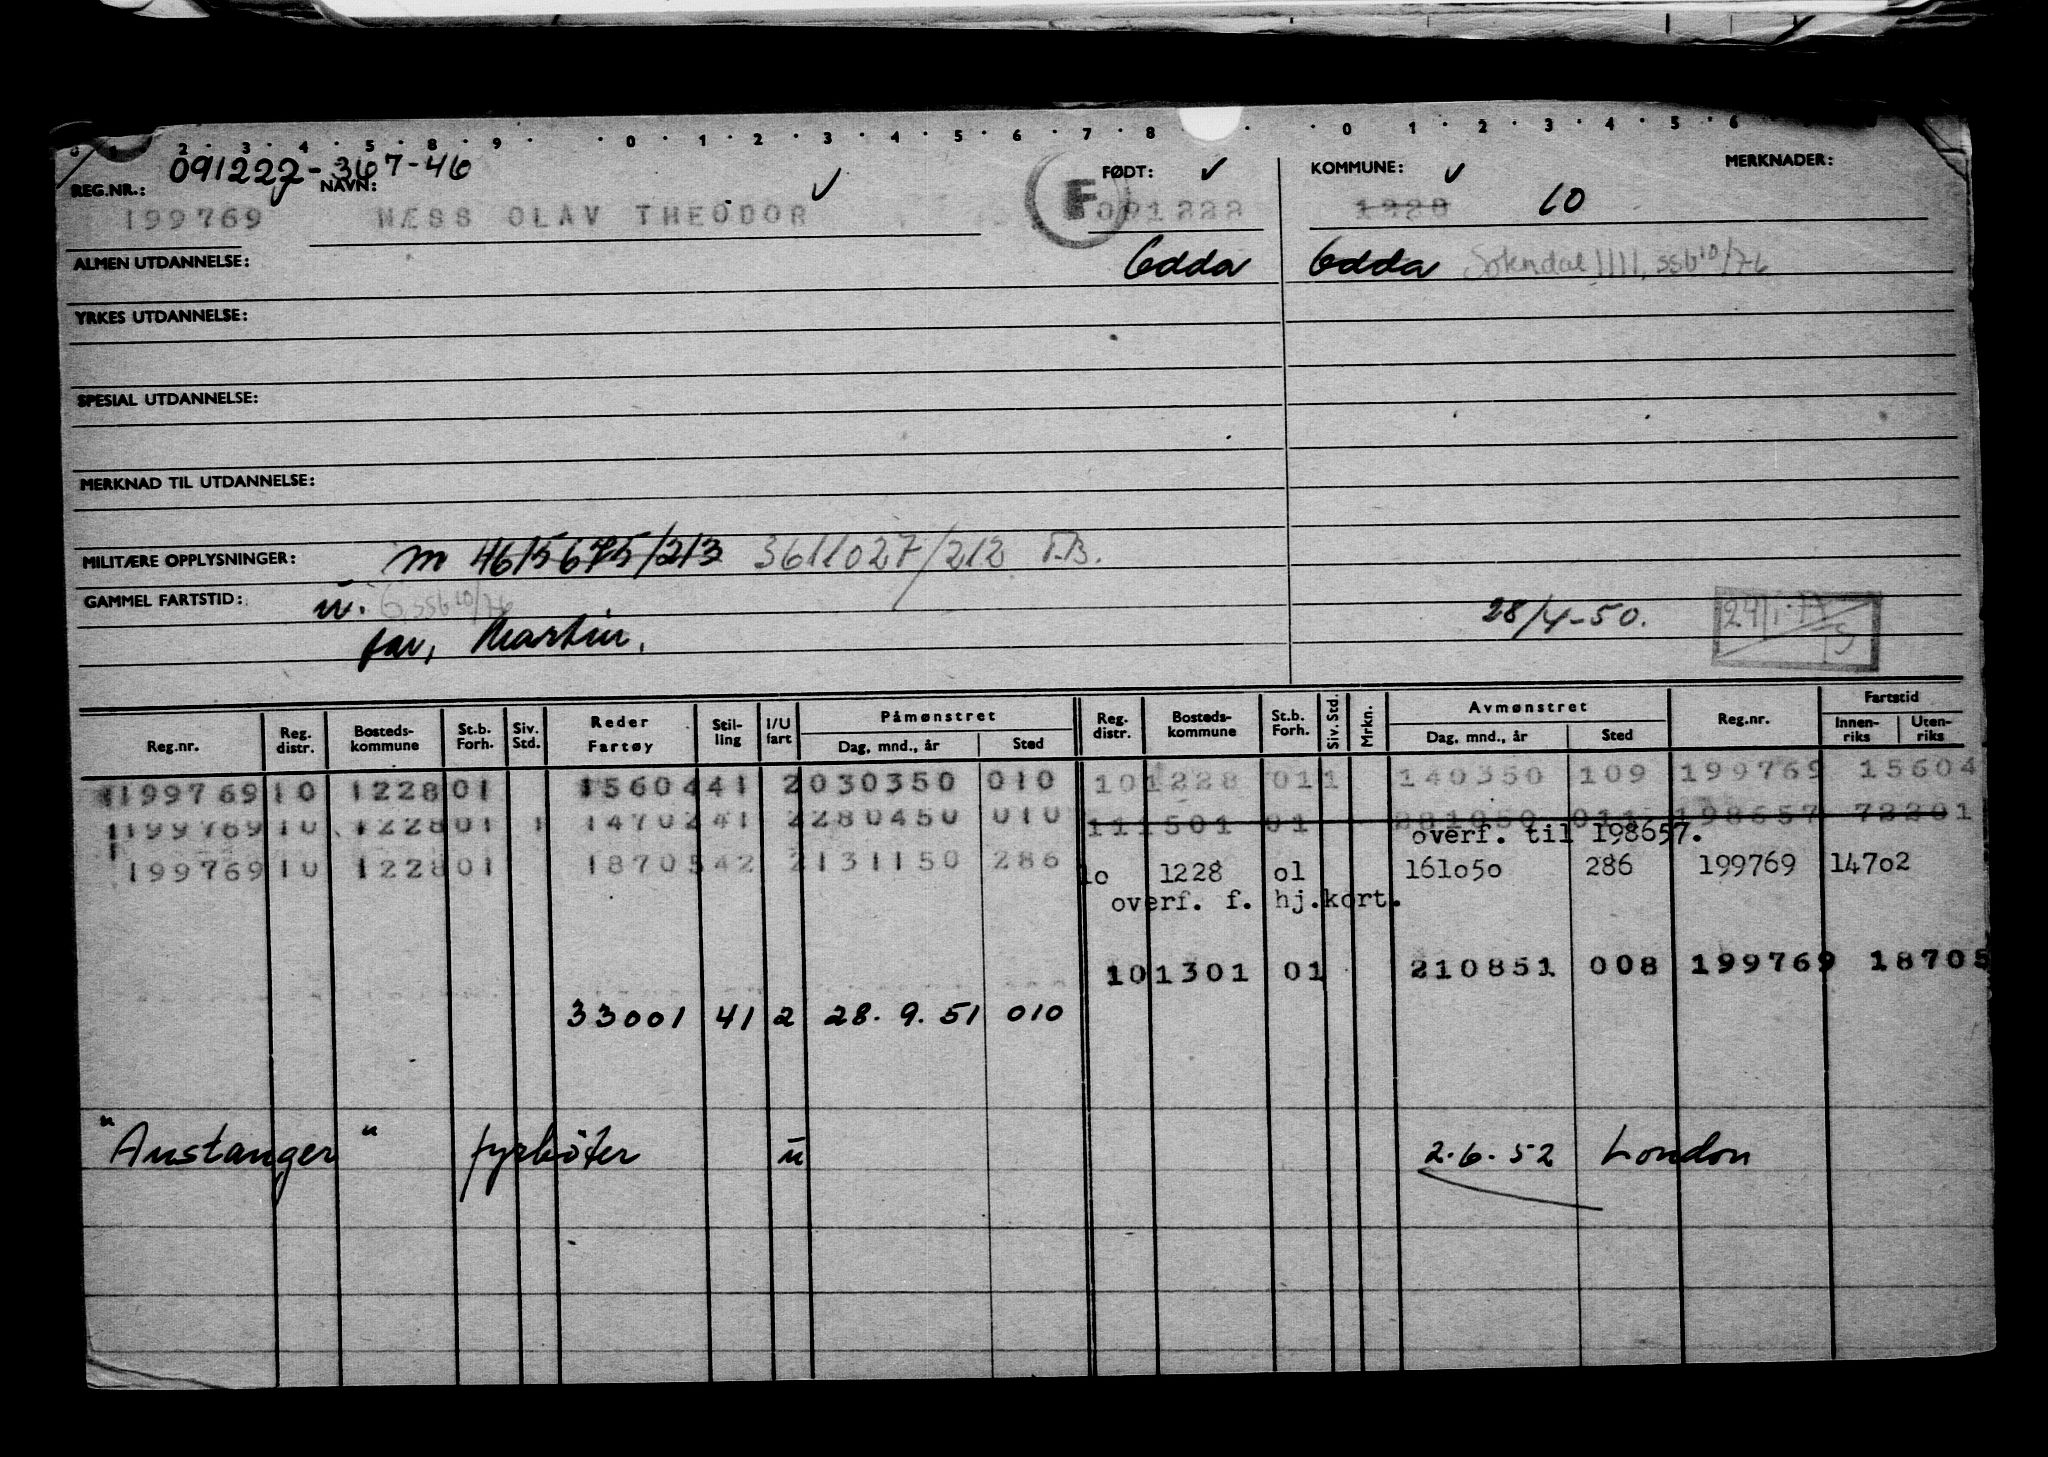 0 1 · 2 · 3 · 4 · 5 · 8 · 9 · · 0 · 1 · 2 · 3 · 4 · 5 · 6 · 7 · 8 · · 0 · 1 · 2 · 3 · 4 · 5 · 6
091227-367-46
REG.NR.: NAVN: FØDT: ✓ KOMMUNE: ✓ MERKNADER:
199769 NÆSS OLAV THEODOR F 1228 10
ALMEN UTDANNELSE: Odda Odda Sokndal 1111, ssb 10/76
YRKES UTDANNELSE:
SPESIAL UTDANNELSE:
MERKNAD TIL UTDANNELSE:
MILITÆRE OPPLYSNINGER: m 4615675/213 3611027/212 T.B.
GAMMEL FARTSTID: u. G ssb 10/76 28/4-50.
far, Martin.
Reg.nr. Reg. distr. Bosteds-kommune St.b. Forh. Siv. Std. Reder Fartøy Stil-ling I/U fart Påmønstret Dag, mnd., år Sted Reg. distr. Bosteds-kommune St.b. Forh. Siv. Std. Mrkn. Avmønstret Dag, mnd., år Sted Reg.nr. Fartstid Innen-riks Uten-riks
199769 10 1228 01 15604 41 2 030350 010 10 1228 01 1 140350 109 199769 15604
199769 10 1228 01 1 14702 41 2 280450 010 11 1501 01 011 198657 72201
overf. til 198657.
199769 10 1228 01 18705 42 2 131150 286 lo 1228 ol 161o5o 286 199769 147o2
overf. f. hj.kort.
10 1301 01 210851 008 199769 18705
33001 41 2 28. 9. 51 010
"Austanger" fyrböter u 2.6.52 London